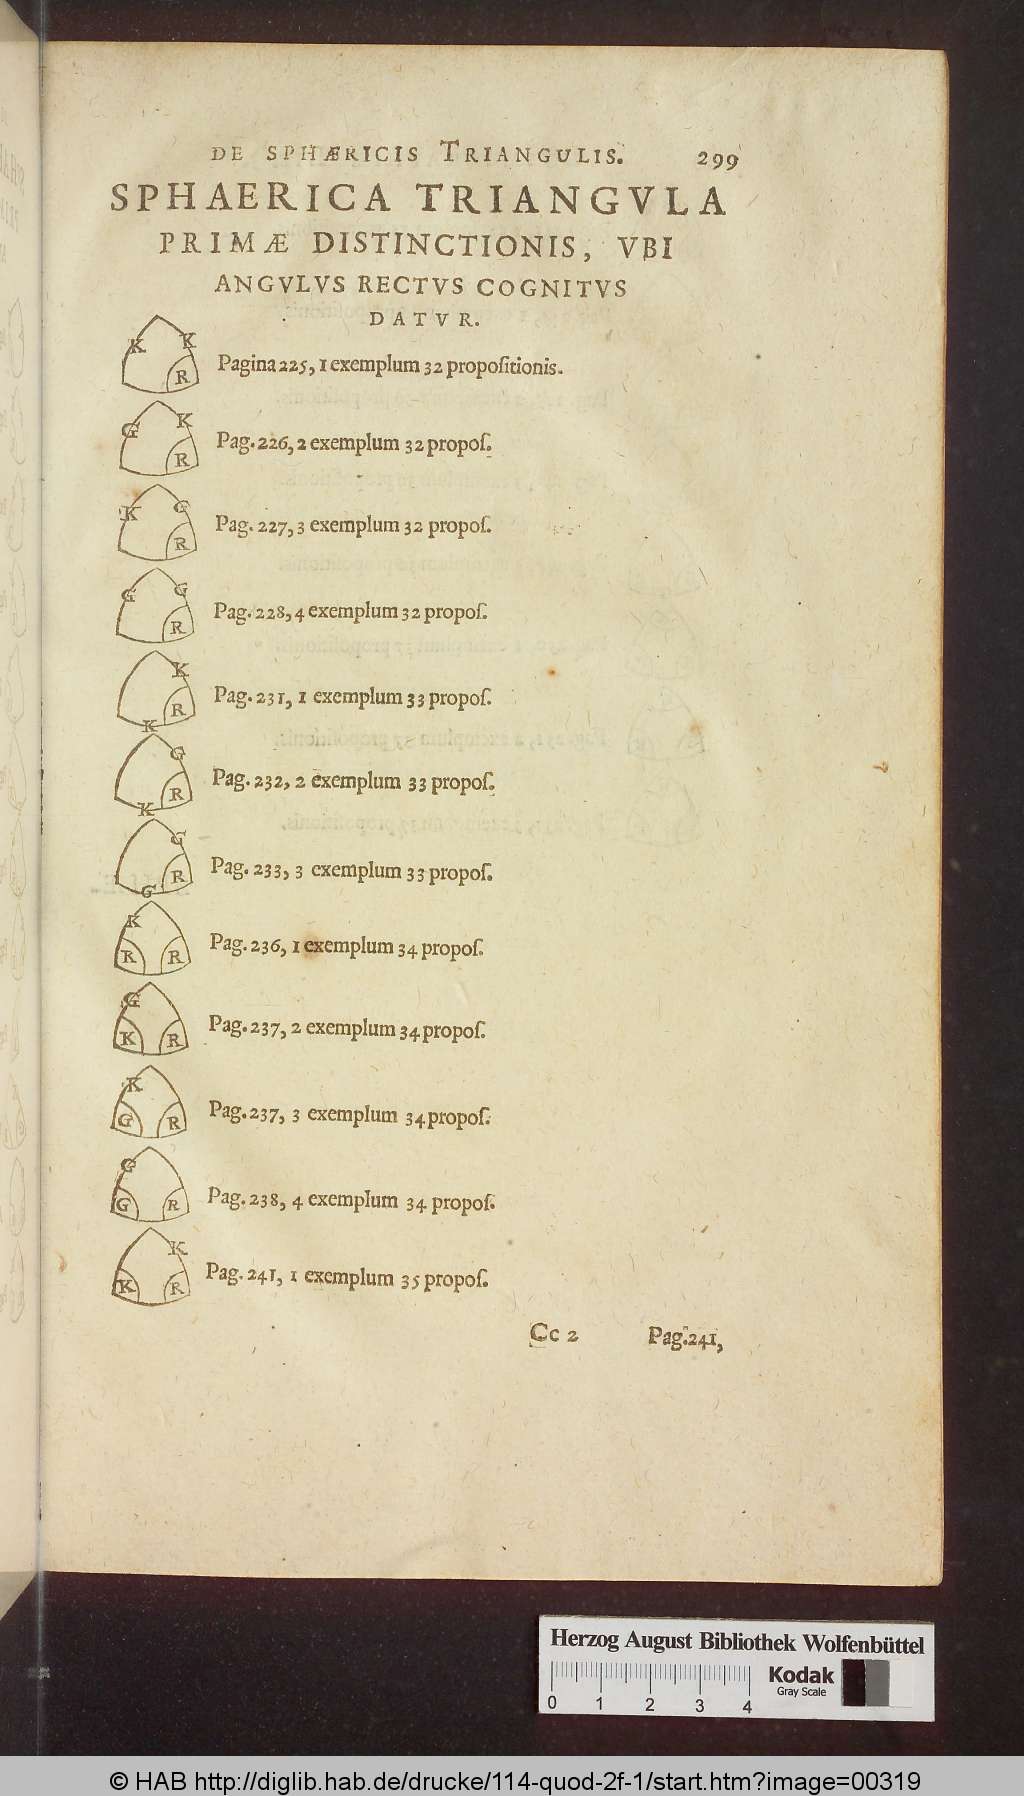 DE SPHÆRICIS TRIANGULIS. 299
SPHAERICA TRIANGVLA
PRIMÆ DISTINCTIONIS, VBI
ANGVLVS RECTVS COGNITVS
DATVR.
K K R Pagina 225, 1 exemplum 32 propoſitionis.
G K R Pag. 226, 2 exemplum 32 propoſ.
K G R Pag. 227, 3 exemplum 32 propoſ.
G G R Pag. 228, 4 exemplum 32 propoſ.
K R K Pag. 231, 1 exemplum 33 propoſ.
G R K Pag. 232, 2 exemplum 33 propoſ.
G R G Pag. 233, 3 exemplum 33 propoſ.
K R R Pag. 236, 1 exemplum 34 propoſ.
G K R Pag. 237, 2 exemplum 34 propoſ.
K G R Pag. 237, 3 exemplum 34 propoſ.
G G R Pag. 238, 4 exemplum 34 propoſ.
K K R Pag. 241, 1 exemplum 35 propoſ.
Cc 2 Pag. 241,
Herzog August Bibliothek Wolfenbüttel
0 1 2 3 4
Kodak
Gray Scale
© HAB http://diglib.hab.de/drucke/114-quod-2f-1/start.htm?image=00319